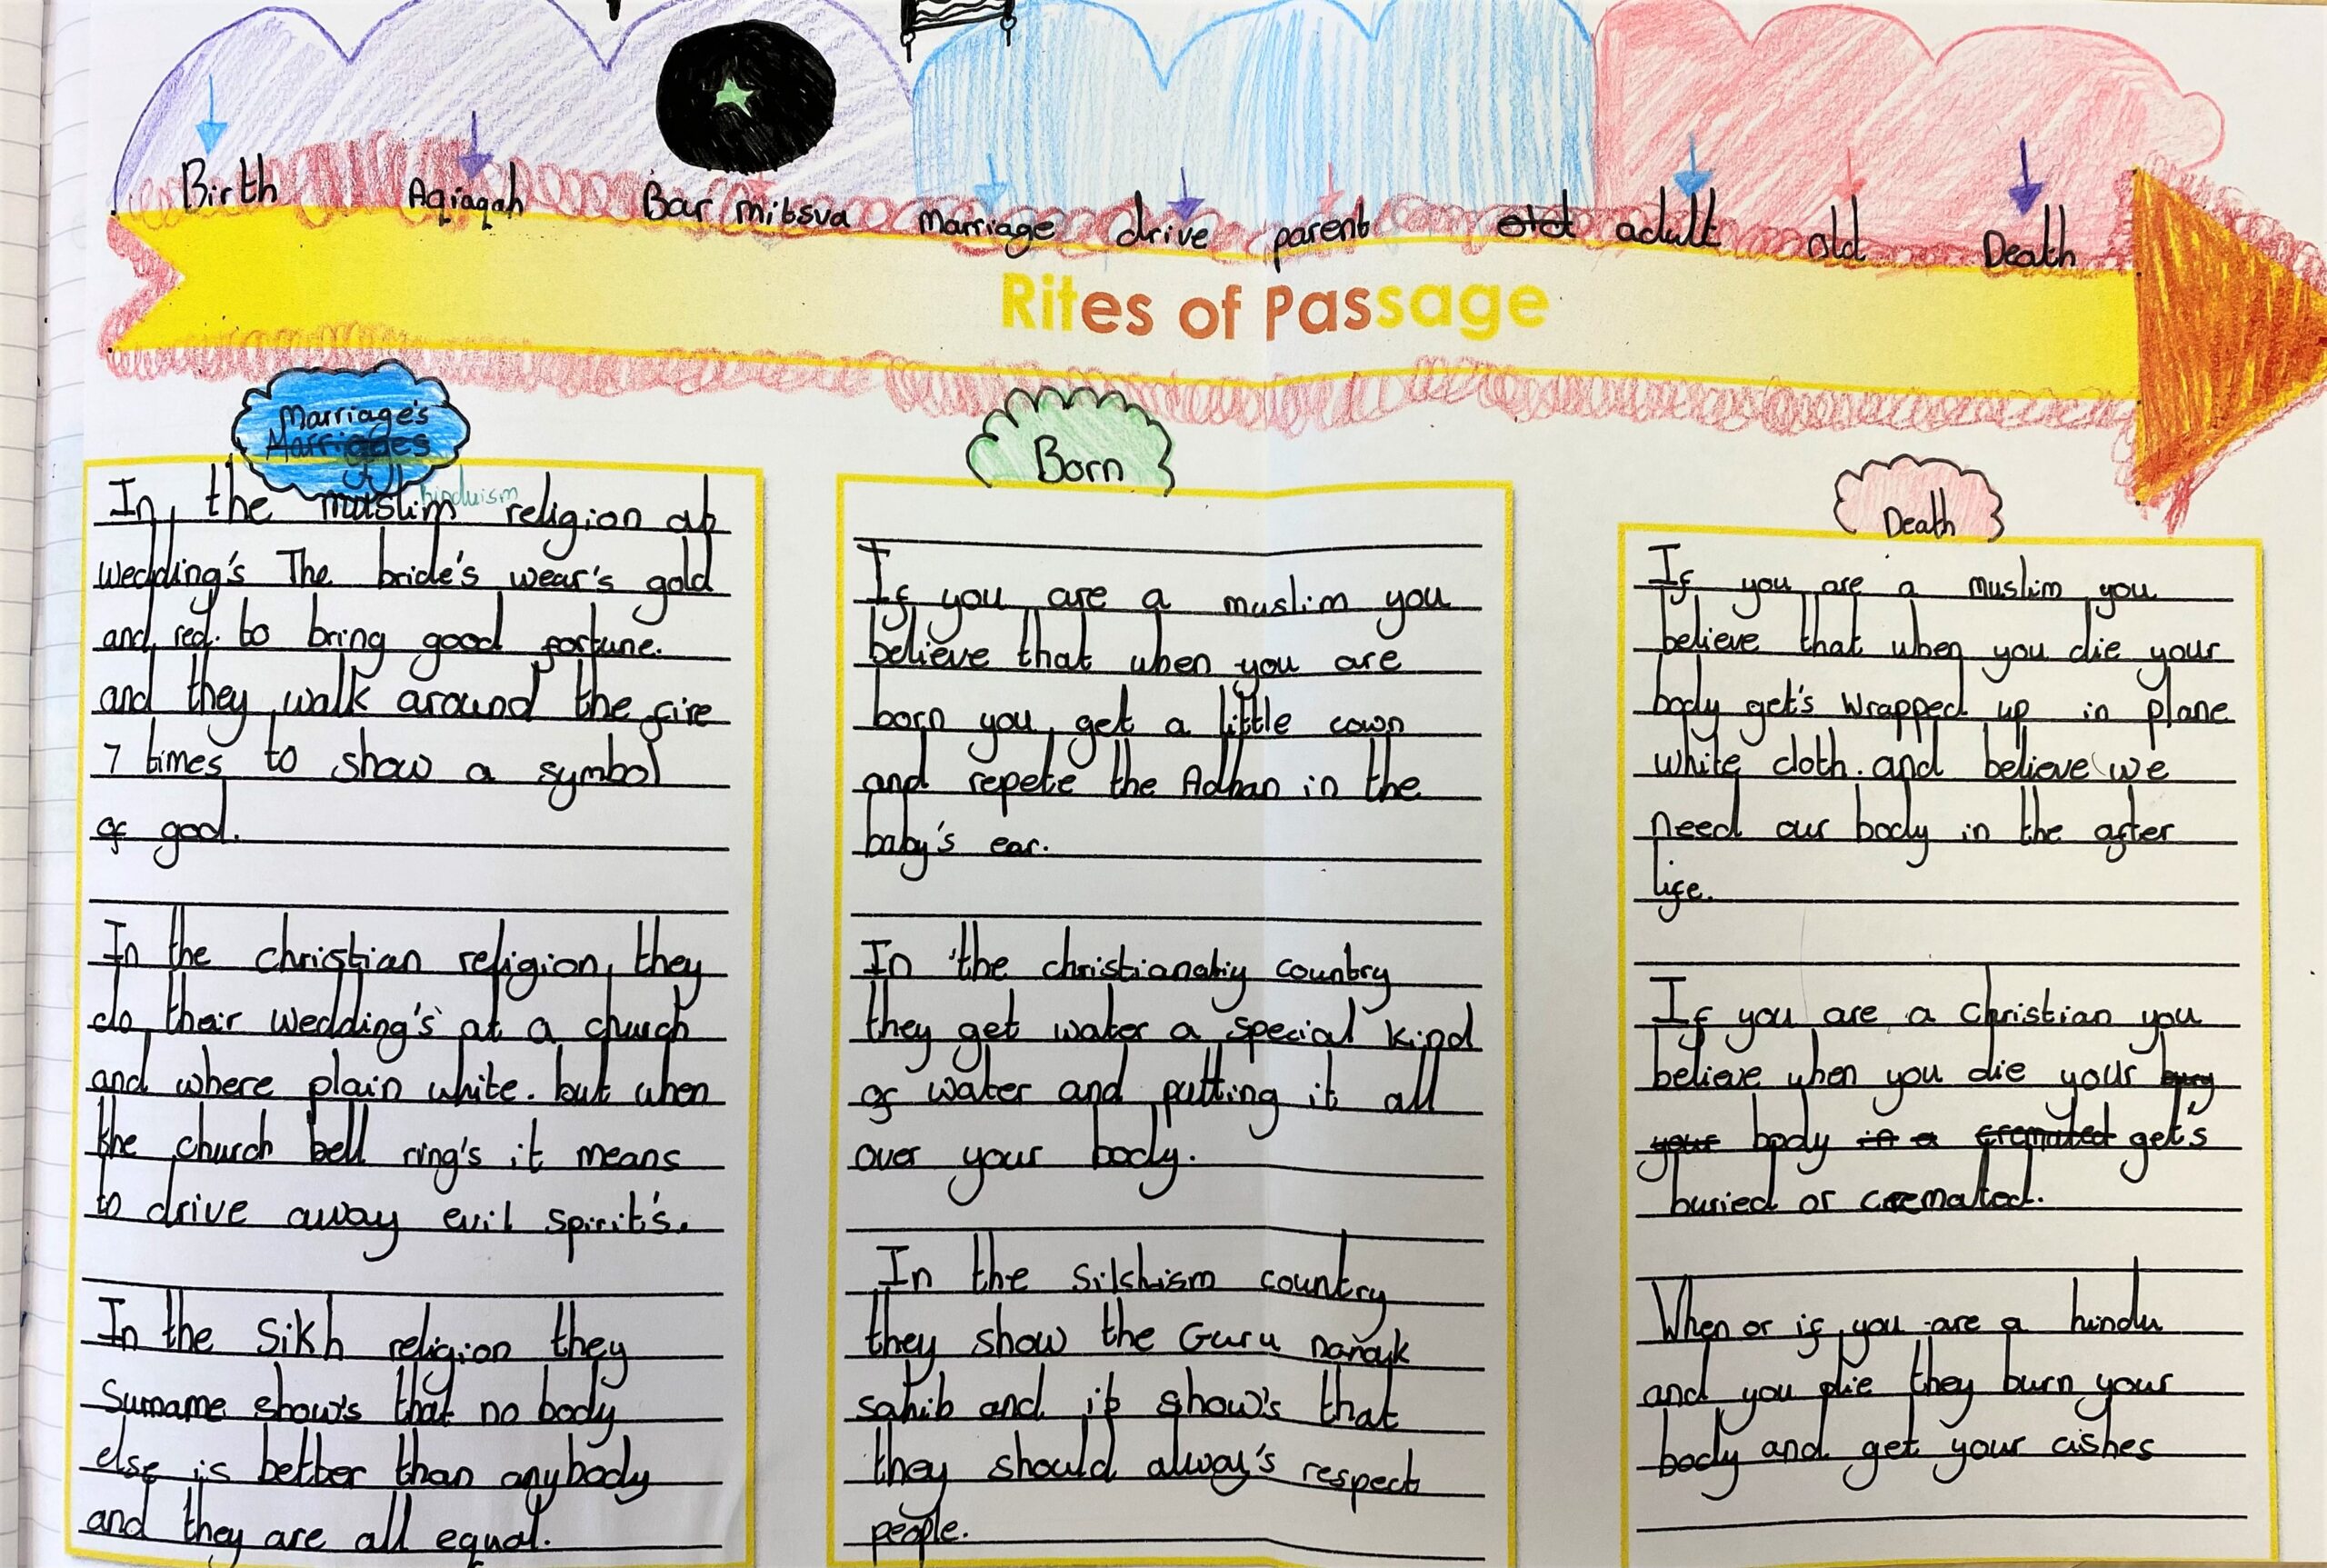 Birth Aqiaqah Bar mitsva Marriage drive parent old adult old Death
Rites of Passage
Marriage's
Marriages
hinduism
In the muslim religion at
wedding's The bride's wear's gold
and red. to bring good fortune.
and they walk around the fire
7 times to show a symbol
of god.
In the christian religion, they
do their wedding's at a church
and where plain white. but when
the church bell ring's it means
to drive away evil spirit's.
In the Sikh religion they
Surname show's that no body
else is better than anybody
and they are all equal.
Born
If you are a muslim you
believe that when you are
born you get a little cown
and repete the Adhan in the
baby's ear.
In the christianatiy country
they get water a special kind
of water and putting it all
over your body.
In the silshism country
they show the Guru nanayk
sahib and it show's that
they should alway's respect
people.
Death
If you are a muslim you
believe that when you die your
body get's wrapped up in plane
white cloth. and believe we
need our body in the after
life.
If you are a christian you
believe when you die your bury
your body in a cremated get's
buried or cremated.
When or if you are a hindu
and you die they burn your
body and get your ashes